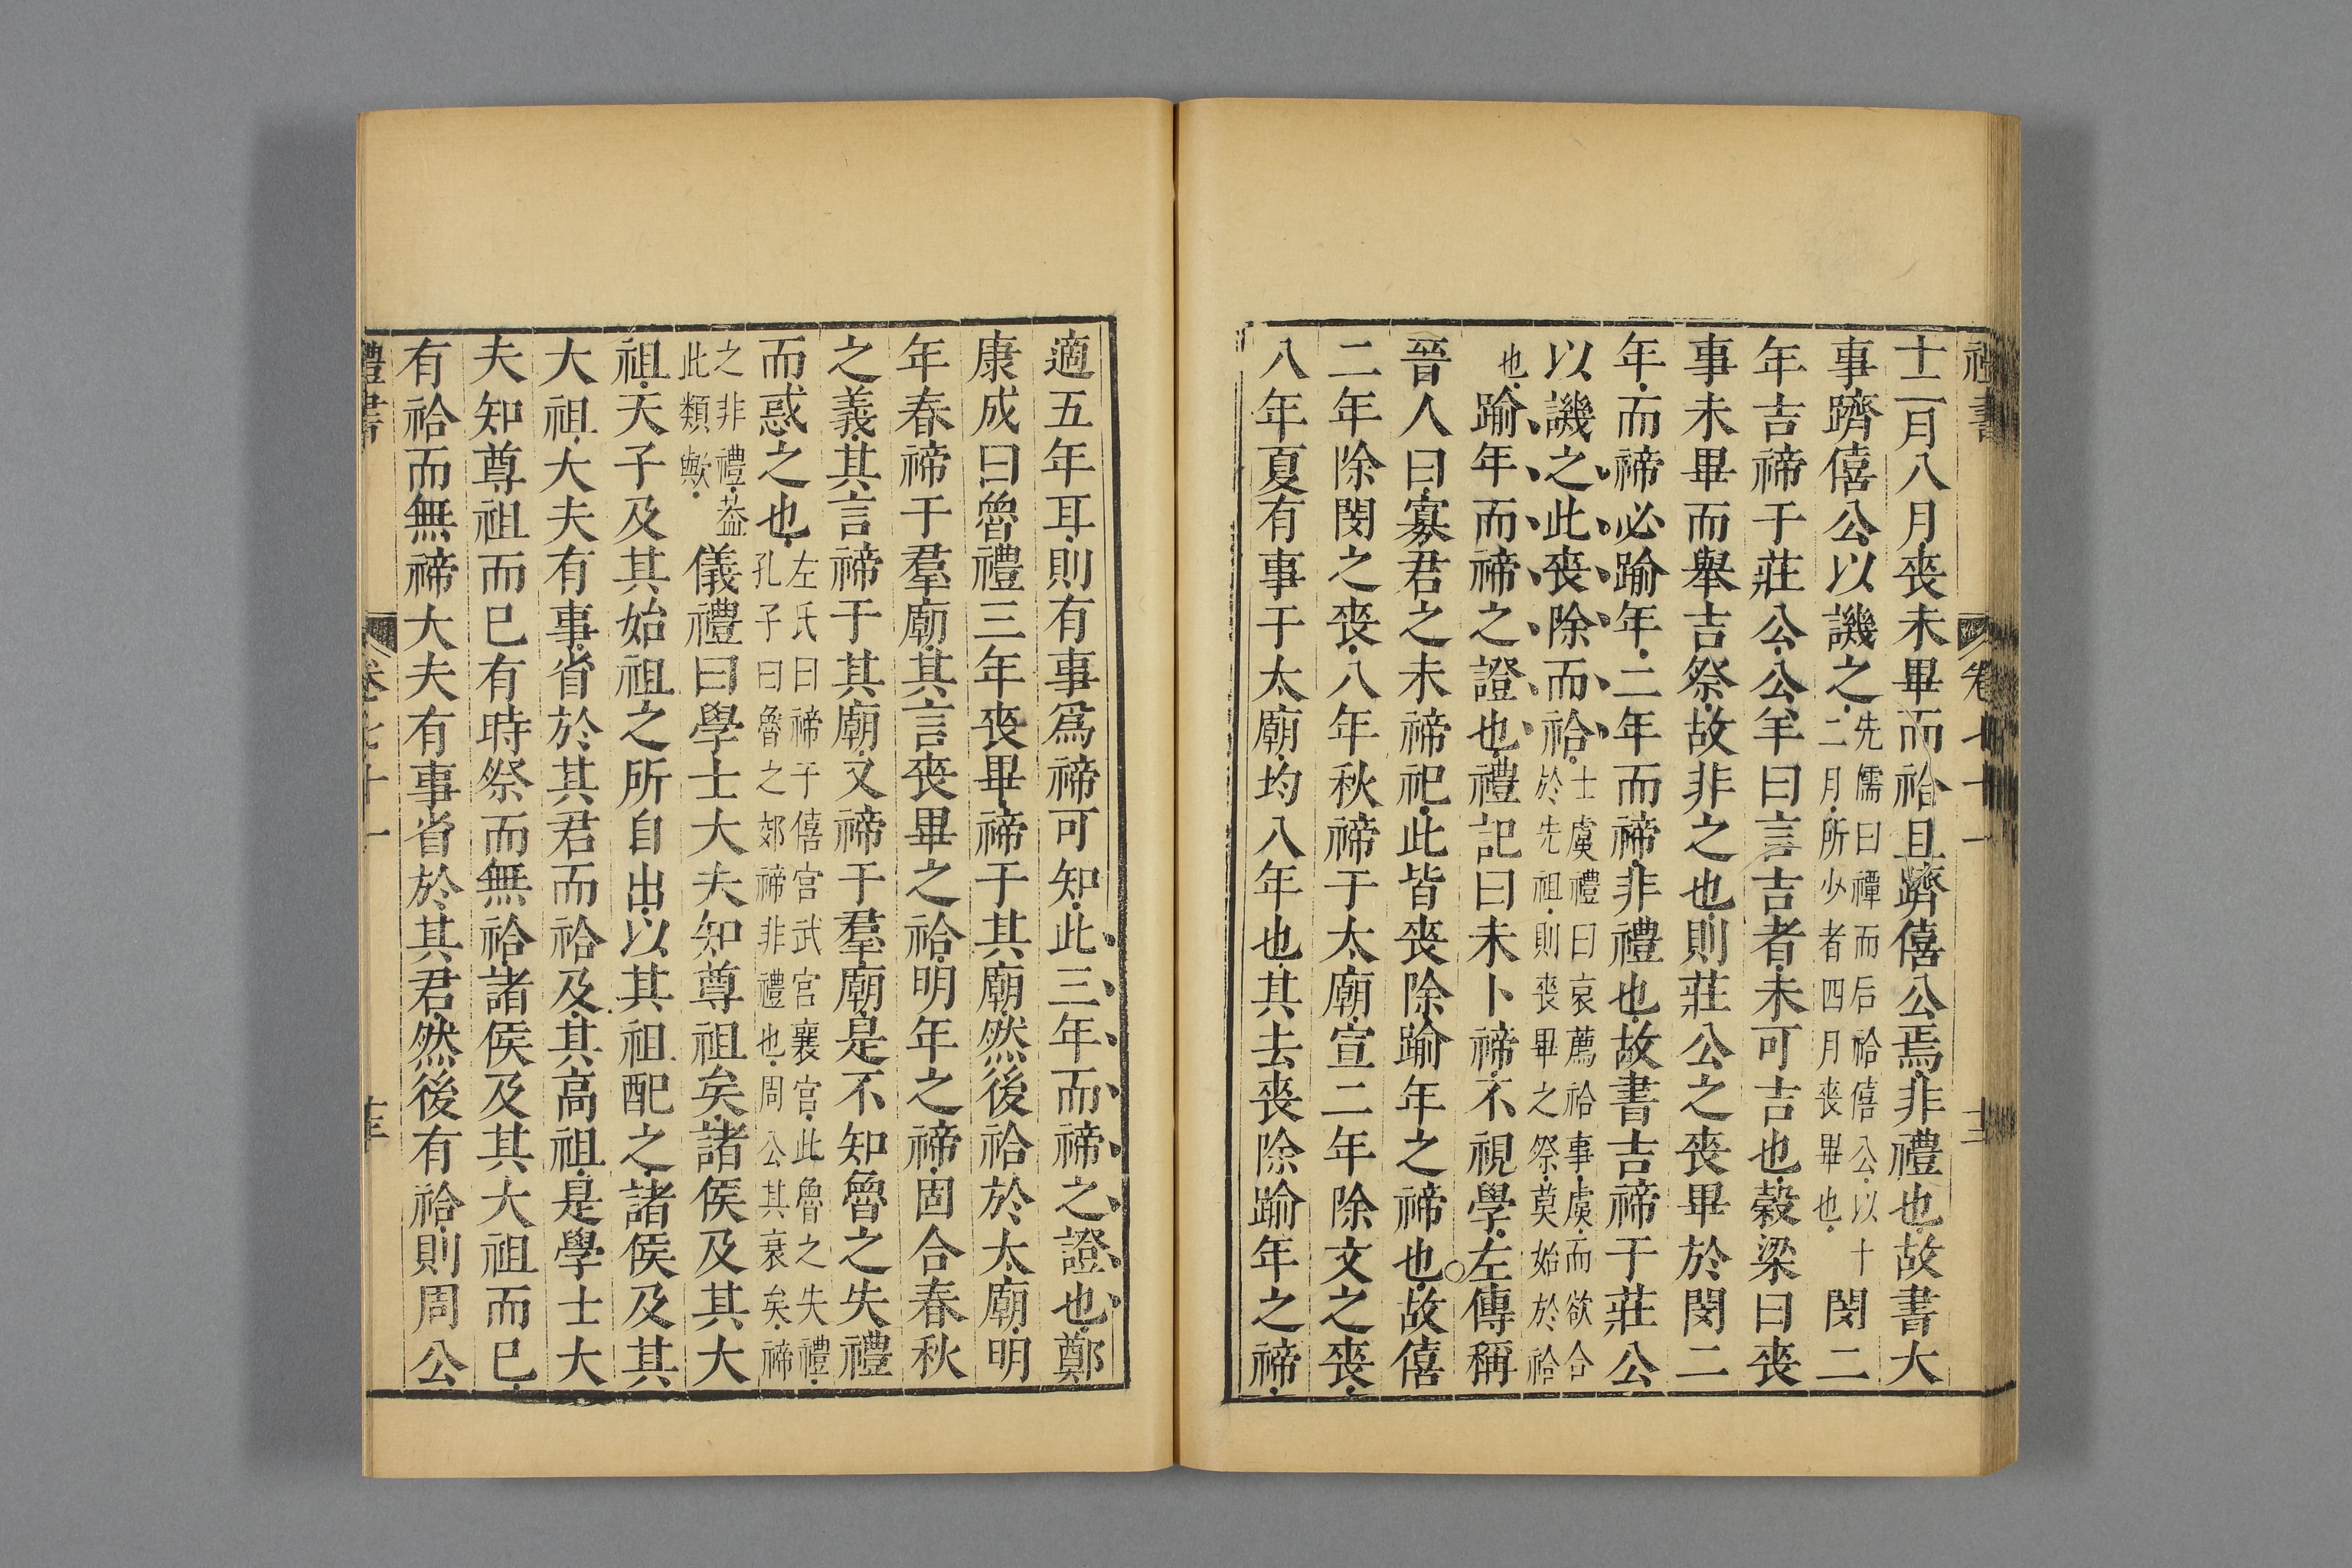 禮書
卷七十一
十二月八月喪未畢而祫且躋僖公焉非禮也故書大
事躋僖公以譏之先儒曰禫而后祫僖公以十二月所少者四月喪畢也閔二
年吉禘于莊公公羊曰言吉者未可吉也穀梁曰喪
事未畢而舉吉祭故非之也則莊公之喪畢於閔二
年而禘必踰年二年而禘非禮也故書吉禘于莊公
以譏之此喪除而祫士虞禮曰哀薦祫事虞而欲合於先祖則喪畢之祭莫始於祫
也踰年而禘之證也禮記曰未卜禘不視學左傳稱
晉人曰寡君之未禘祀此皆喪除踰年之禘也○故僖
二年除閔之喪八年秋禘于太廟宣二年除文之喪
八年夏有事于太廟均八年也其去喪除踰年之禘
適五年耳則有事爲禘可知此三年而禘之證也鄭
康成曰魯禮三年喪畢禘于其廟然後祫於太廟明
年春禘于羣廟其言喪畢之祫明年之禘固合春秋
之義其言禘于其廟又禘于羣廟是不知魯之失禮
而惑之也左氏曰禘于僖宮武宮襄宮此魯之失禮孔子曰魯之郊禘非禮也周公其衰矣禘
之非禮葢此類歟儀禮曰學士大夫知尊祖矣諸侯及其大
祖天子及其始祖之所自出以其祖配之諸侯及其
大祖大夫有事省於其君而祫及其高祖是學士大
夫知尊祖而已有時祭而無祫諸侯及其大祖而已
有祫而無禘大夫有事省於其君然後有祫則周公
禮書
卷七十一